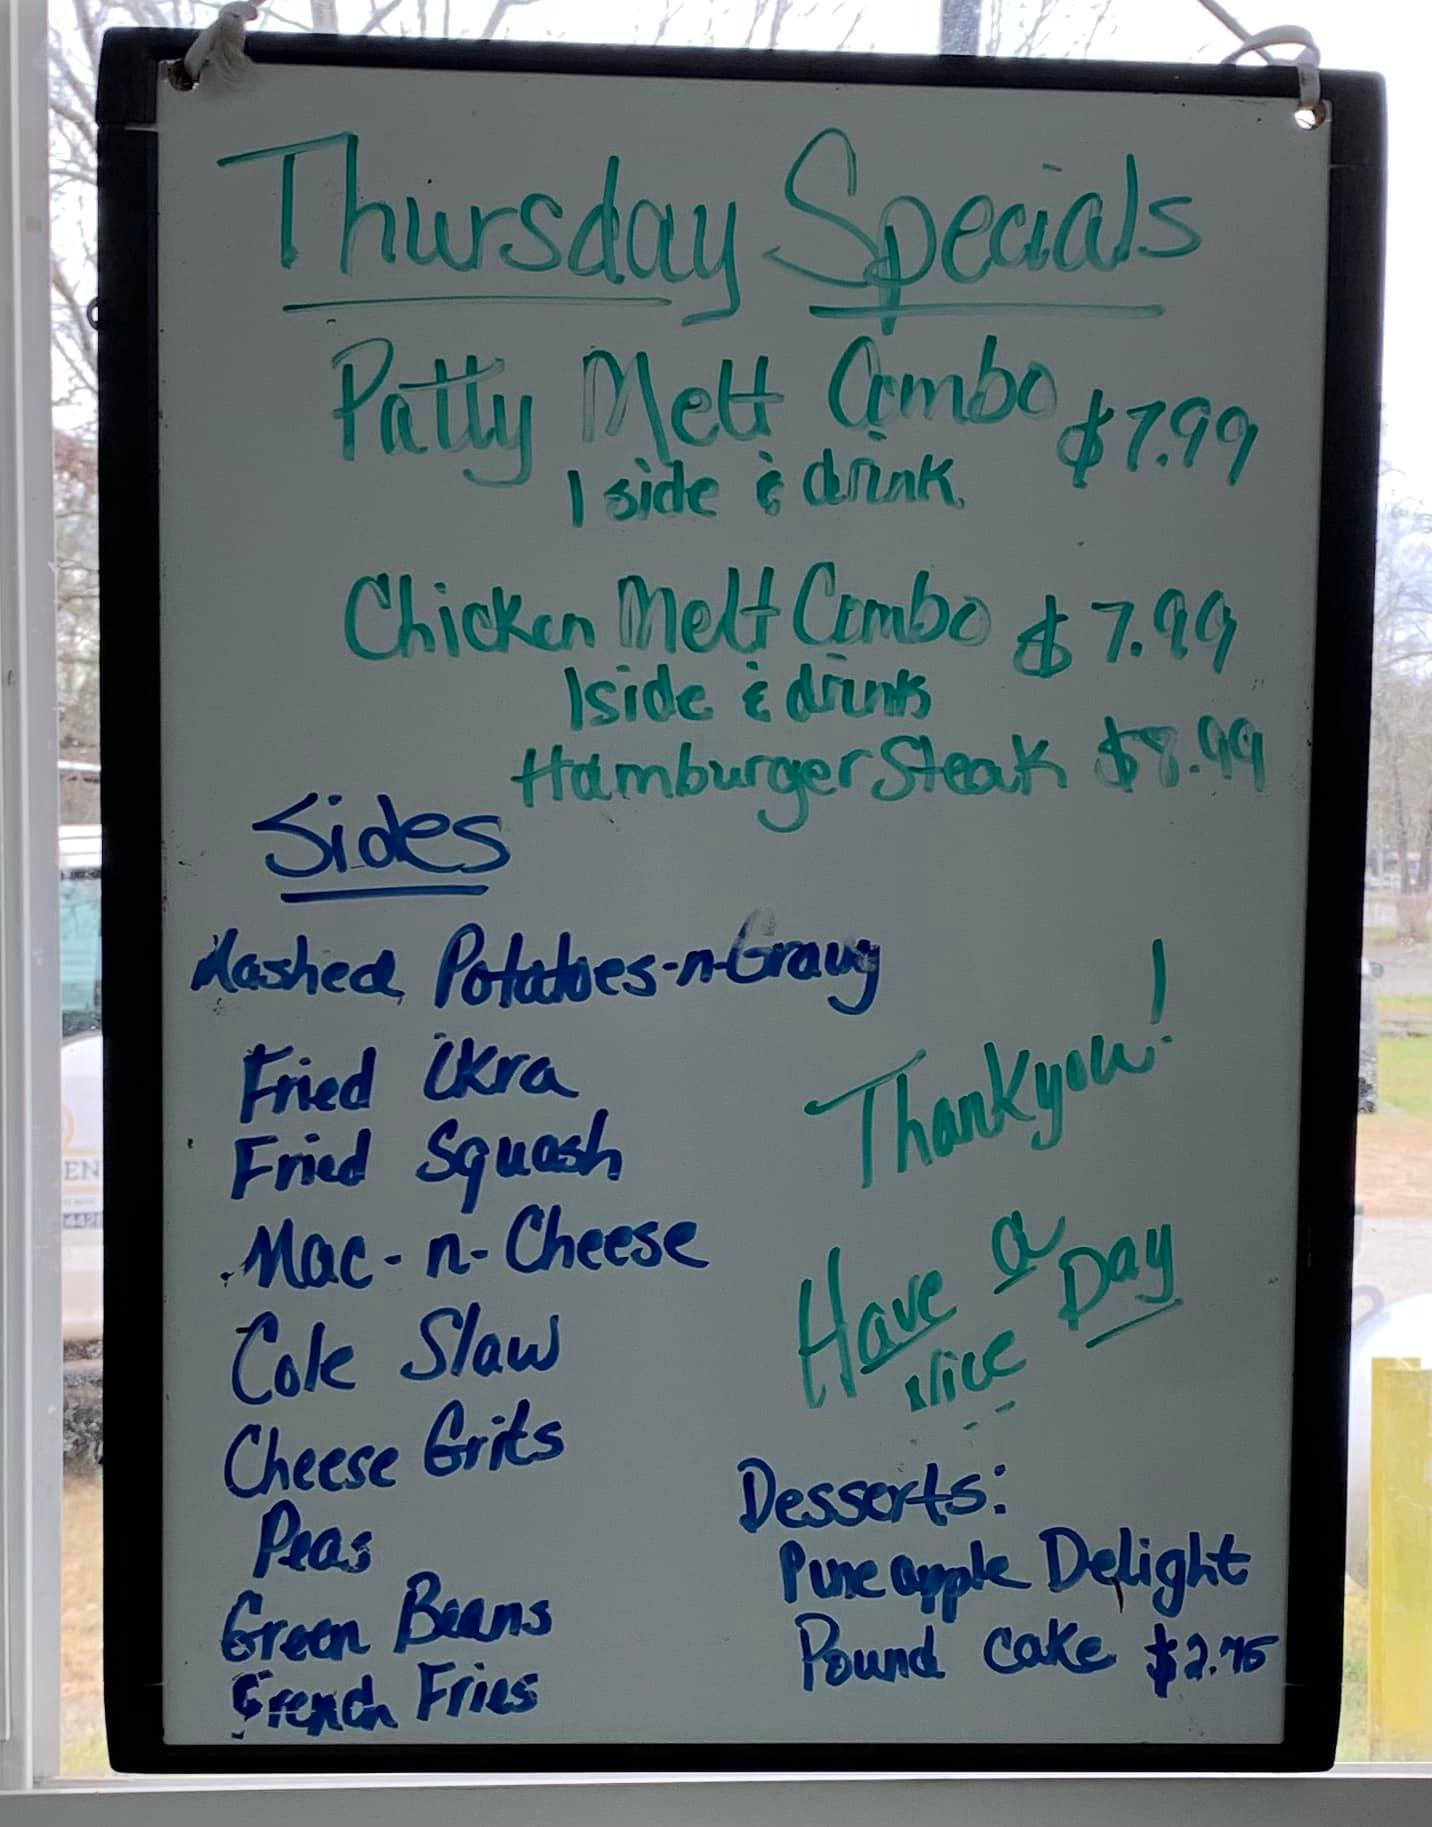 Thursday Specials
Patty Melt Combo $7.99
1 side & drink
Chicken Melt Combo $7.99
1 side & drink
Hamburger Steak $8.99
Sides
Mashed Potatoes-n-Gravy
Fried Okra
Fried Squash
Mac-n-Cheese
Cole Slaw
Cheese Grits
Peas
Green Beans
French Fries
Thank you!
Have a
Nice Day
Desserts:
Pineapple Delight
Pound cake $2.75
EN
442